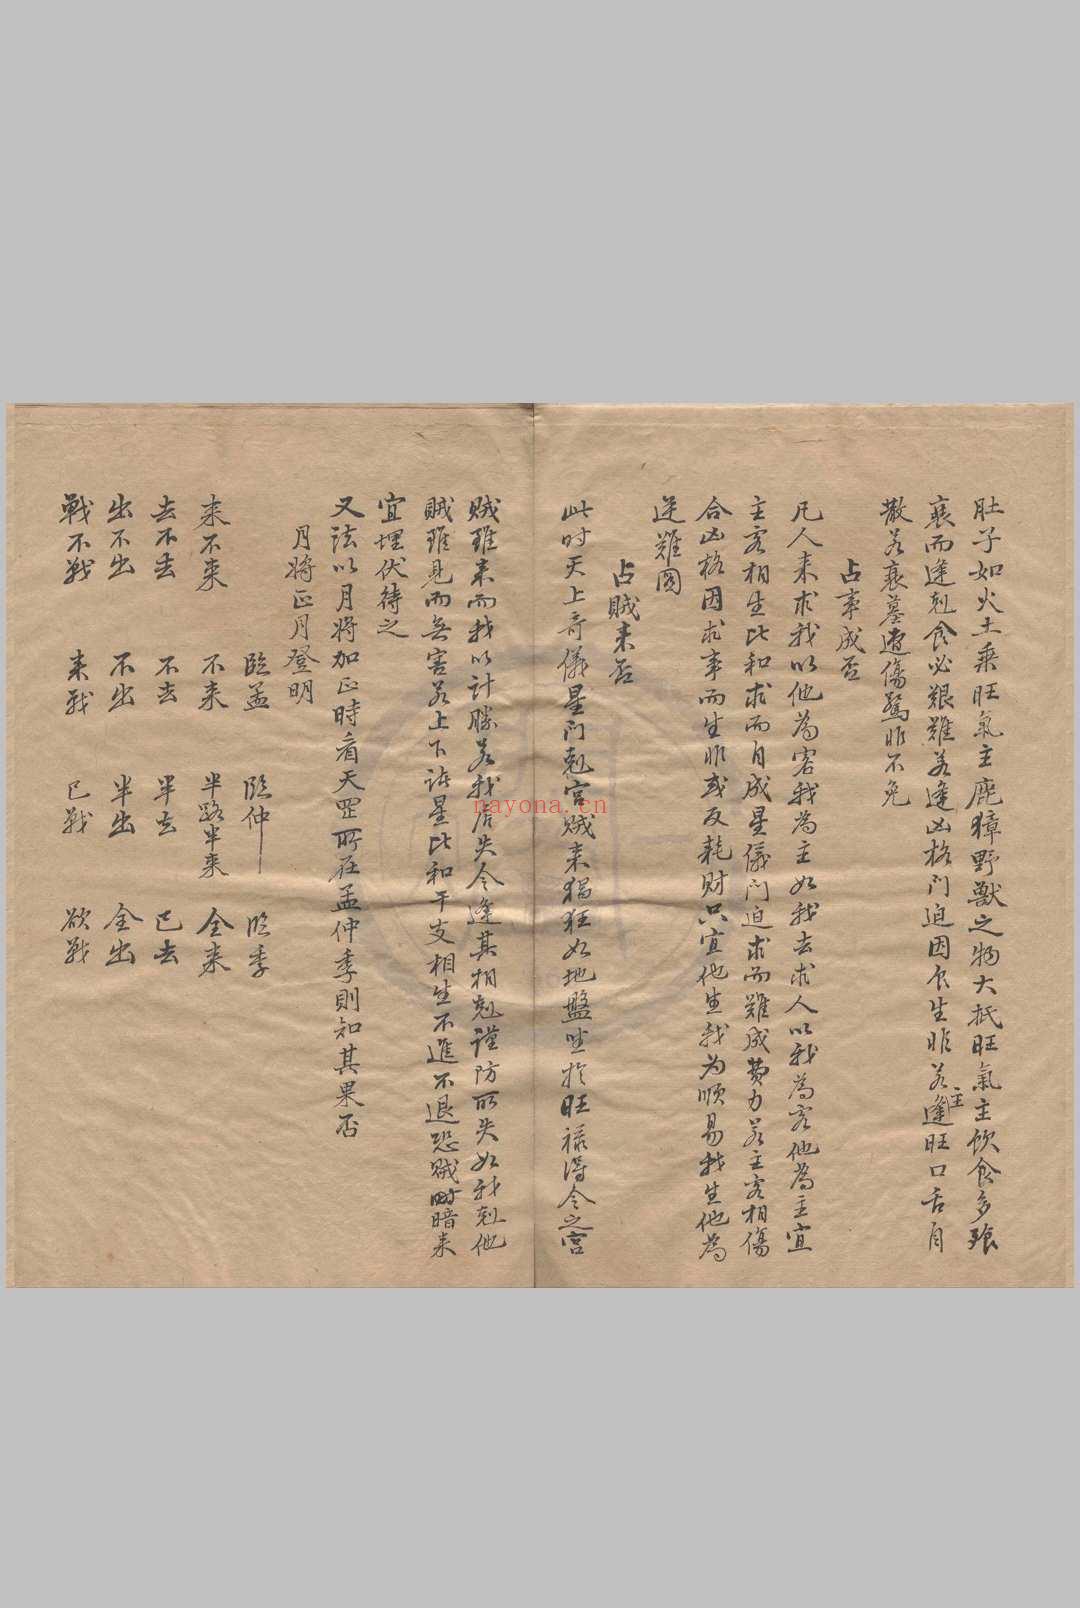 肚子如火土乘旺氣主鹿獐野獸之物大抵旺氣主飲食多殽
衰而逢剋食必艱難若逢凶格门迫因食生非若逢主旺口舌自
散若衰墓遭傷驚非不免
占事成否
凡人来求我以他為客我為主如我去求人以我為客他為主宜
主客相生比和求而自成星儀门迫求而難成費力若主客相傷
合凶格因求事而生非或反耗財只宜他生我为順易我生他為
逆難圖
占贼来否
此时天上奇儀星门剋宫贼来猖狂如地盤坐於旺禄得令之宫
贼雖来而我以計勝若我居失令逢其相剋謹防所失如我剋他
贼雖見而無害若上下諸星比和干支相生不進不退恐贼暗来
宜埋伏待之
又法以月將加正時看天罡所在孟仲季則知其果否
月將正月登明
臨孟 臨仲 臨季
来不来 不来 半路半来 全来
去不去 不去 半去 已去
出不出 不出 半出 全出
戰不戰 来戰 已戰 欲戰
nayona.cn